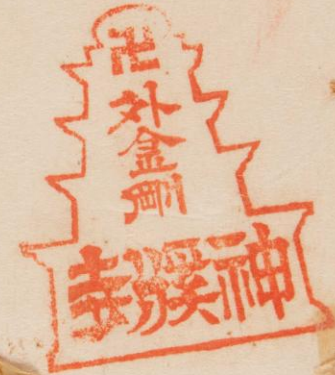 卍
外金剛
神溪寺